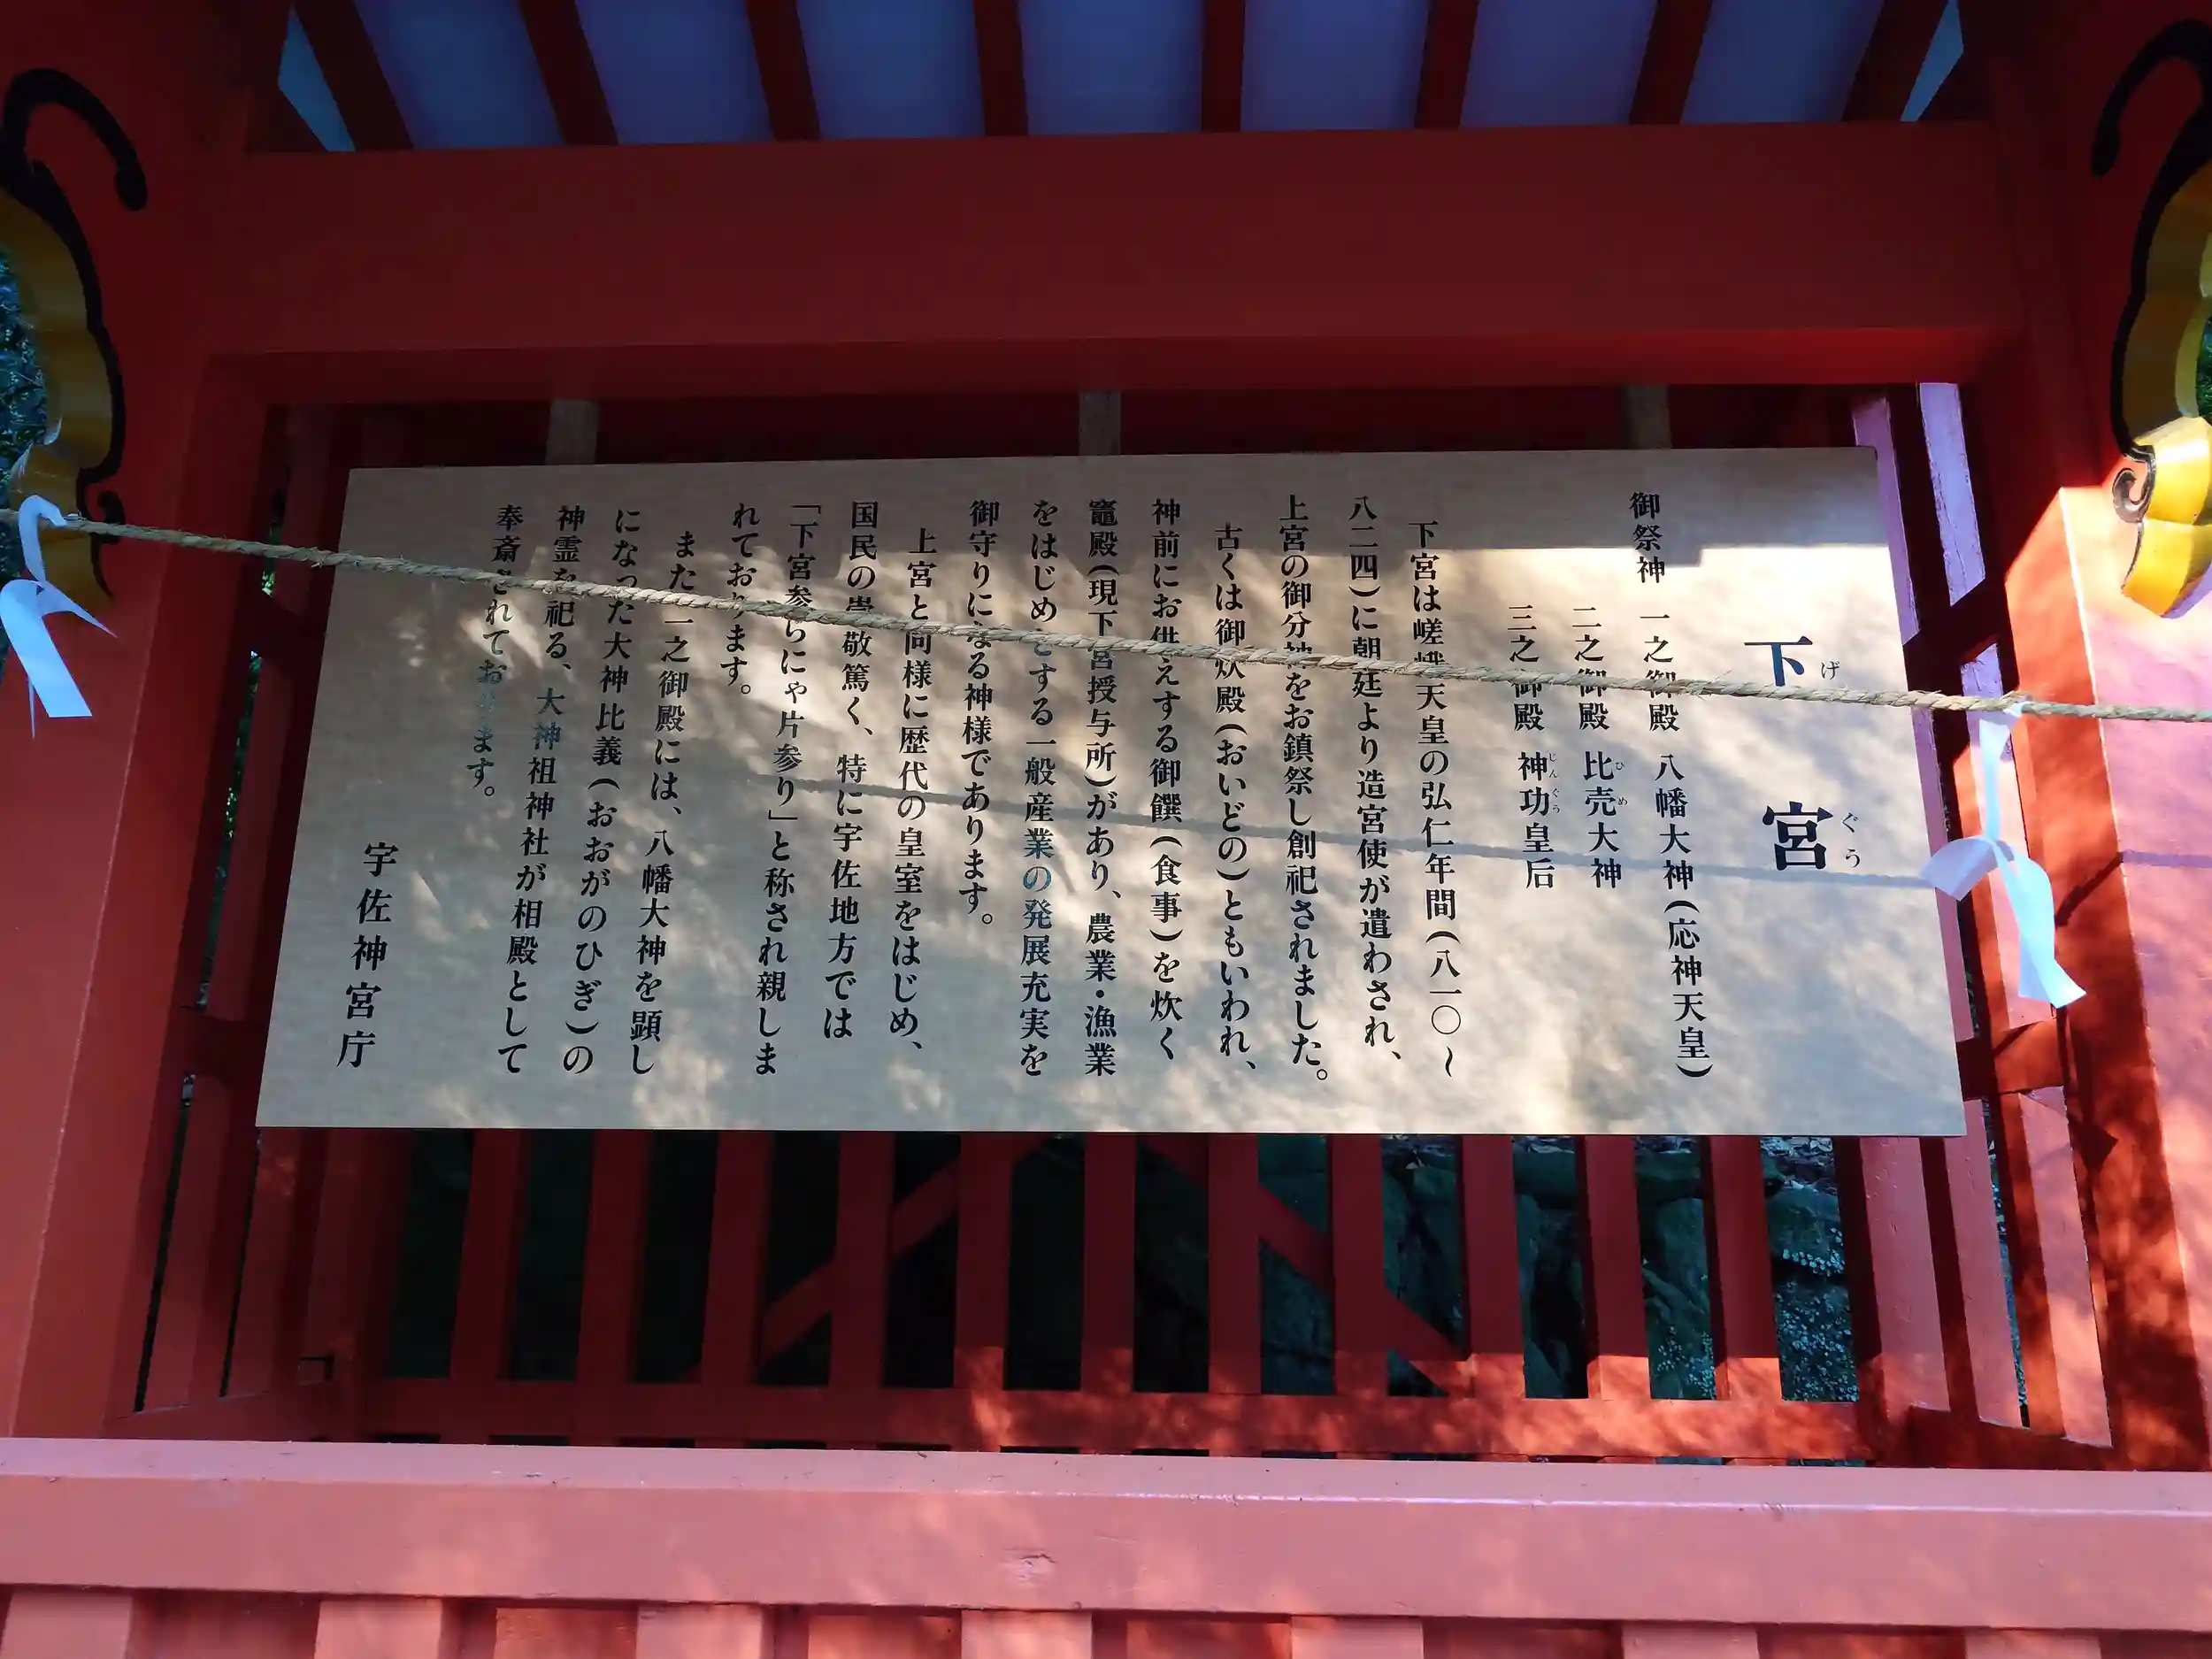 下宮
げぐう
御祭神 一之御殿 八幡大神(応神天皇)
二之御殿 比売大神
ひめ
三之御殿 神功皇后
じんぐう
下宮は嵯峨天皇の弘仁年間(八一〇～
八二四)に朝廷より造宮使が遣わされ、
上宮の御分神をお鎮祭し創祀されました。
古くは御炊殿(おいどの)ともいわれ、
神前にお供えする御饌(食事)を炊く
竈殿(現下宮授与所)があり、農業・漁業
をはじめとする一般産業の発展充実を
御守りになる神様であります。
上宮と同様に歴代の皇室をはじめ、
国民の崇敬篤く、特に宇佐地方では
「下宮参らにゃ片参り」と称され親しま
れております。
また一之御殿には、八幡大神を顕し
になった大神比義(おおがのひぎ)の
神霊を祀る、大神祖神社が相殿として
奉斎されております。
宇佐神宮庁